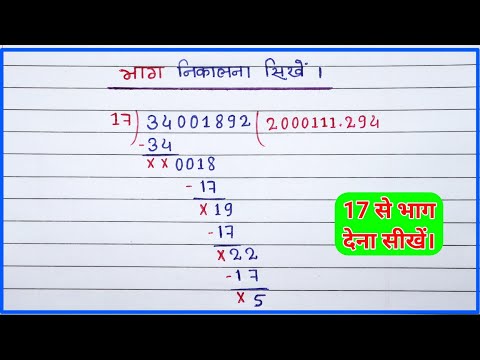 भाग निकालना सिखें ।
17)34001892(2000111.294
-34
××0018
-17
×19
-17
×22
-17
×5
17 से भाग
देना सीखें।